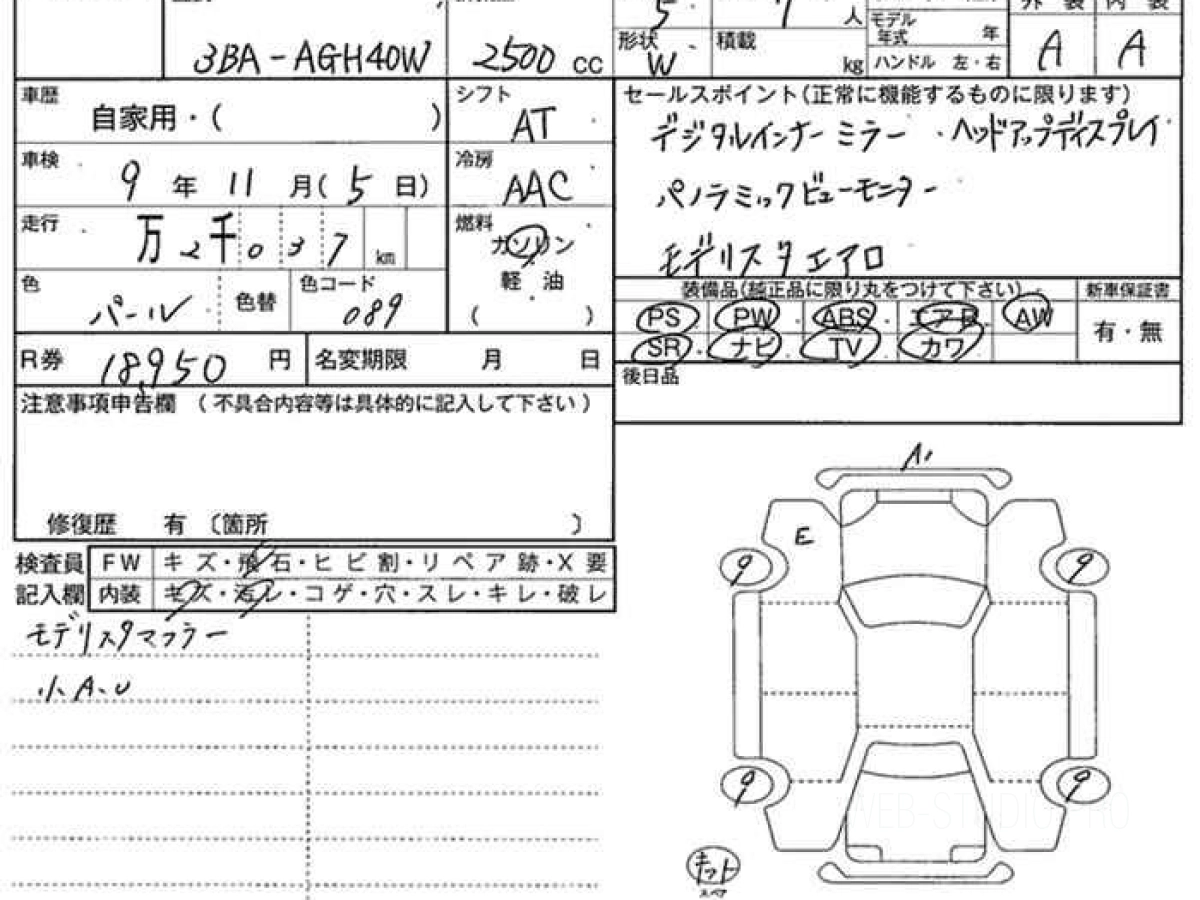 5 7 人
3BA-AGH40W 2500 cc
形状 W 積載 kg
モデル年式 年
ハンドル 左・右
外装 A 内装 A
車歴 自家用・( )
シフト AT
車検 9年11月(5日)
冷房 AAC
走行 万2千037 km
燃料 ガソリン
軽油
( )
色 パール 色替 色コード 089
R券 18,950円 名変期限 月 日
セールスポイント(正常に機能するものに限ります)
デジタルインナーミラー ・ヘッドアップディスプレイ
パノラミックビューモニター
モデリスタエアロ
装備品(純正品に限り丸をつけて下さい) 新車保証書
PS PW ABS エアB AW 有・無
SR ナビ TV カワ
後日品
注意事項申告欄 (不具合内容等は具体的に記入して下さい)
修復歴 有 〔箇所 〕
検査員 FW キズ・飛石・ヒビ割・リペア跡・X要
記入欄 内装 キズ・汚レ・コゲ・穴・スレ・キレ・破レ
モデリスタマフラー
小A.U
A1
E
9 9
9 9
キット
スペア
WEB-STUDIO PRO